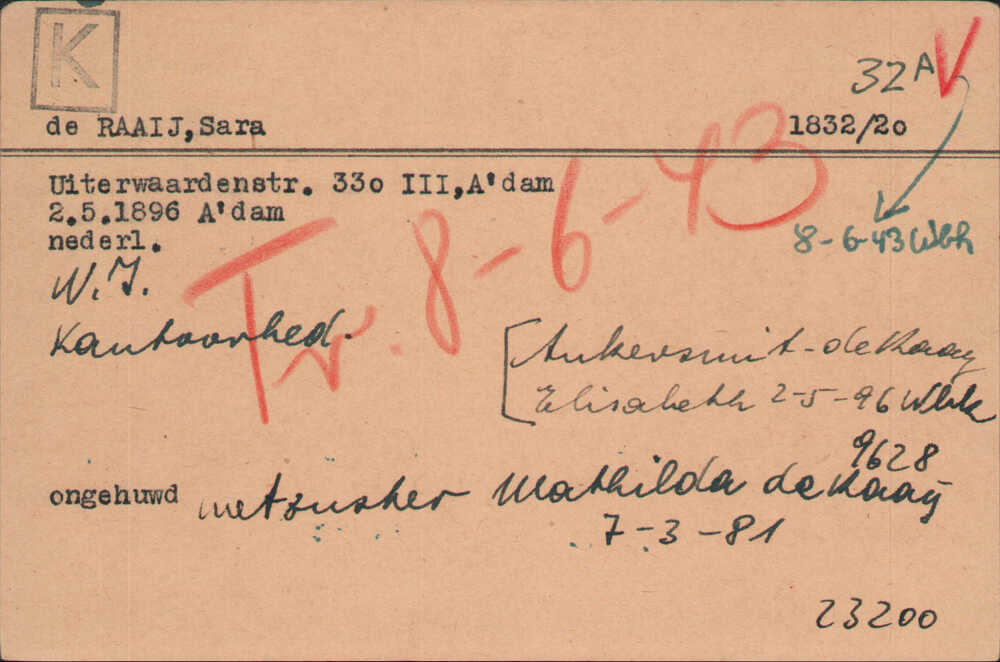 K
32 A V
de RAAIJ,Sara 1832/2o
Uiterwaardenstr. 33o III,A'dam
2.5.1896 A'dam
nederl.
8-6-43 Wbk
N.I.
Tr. 8-6-43
Kantoorbed.
Ankersmit-de Raaij
Elisabeth 2-5-96 Wbk
9628
ongehuwd met zuster Mathilda de Raaij
7-3-81
23200